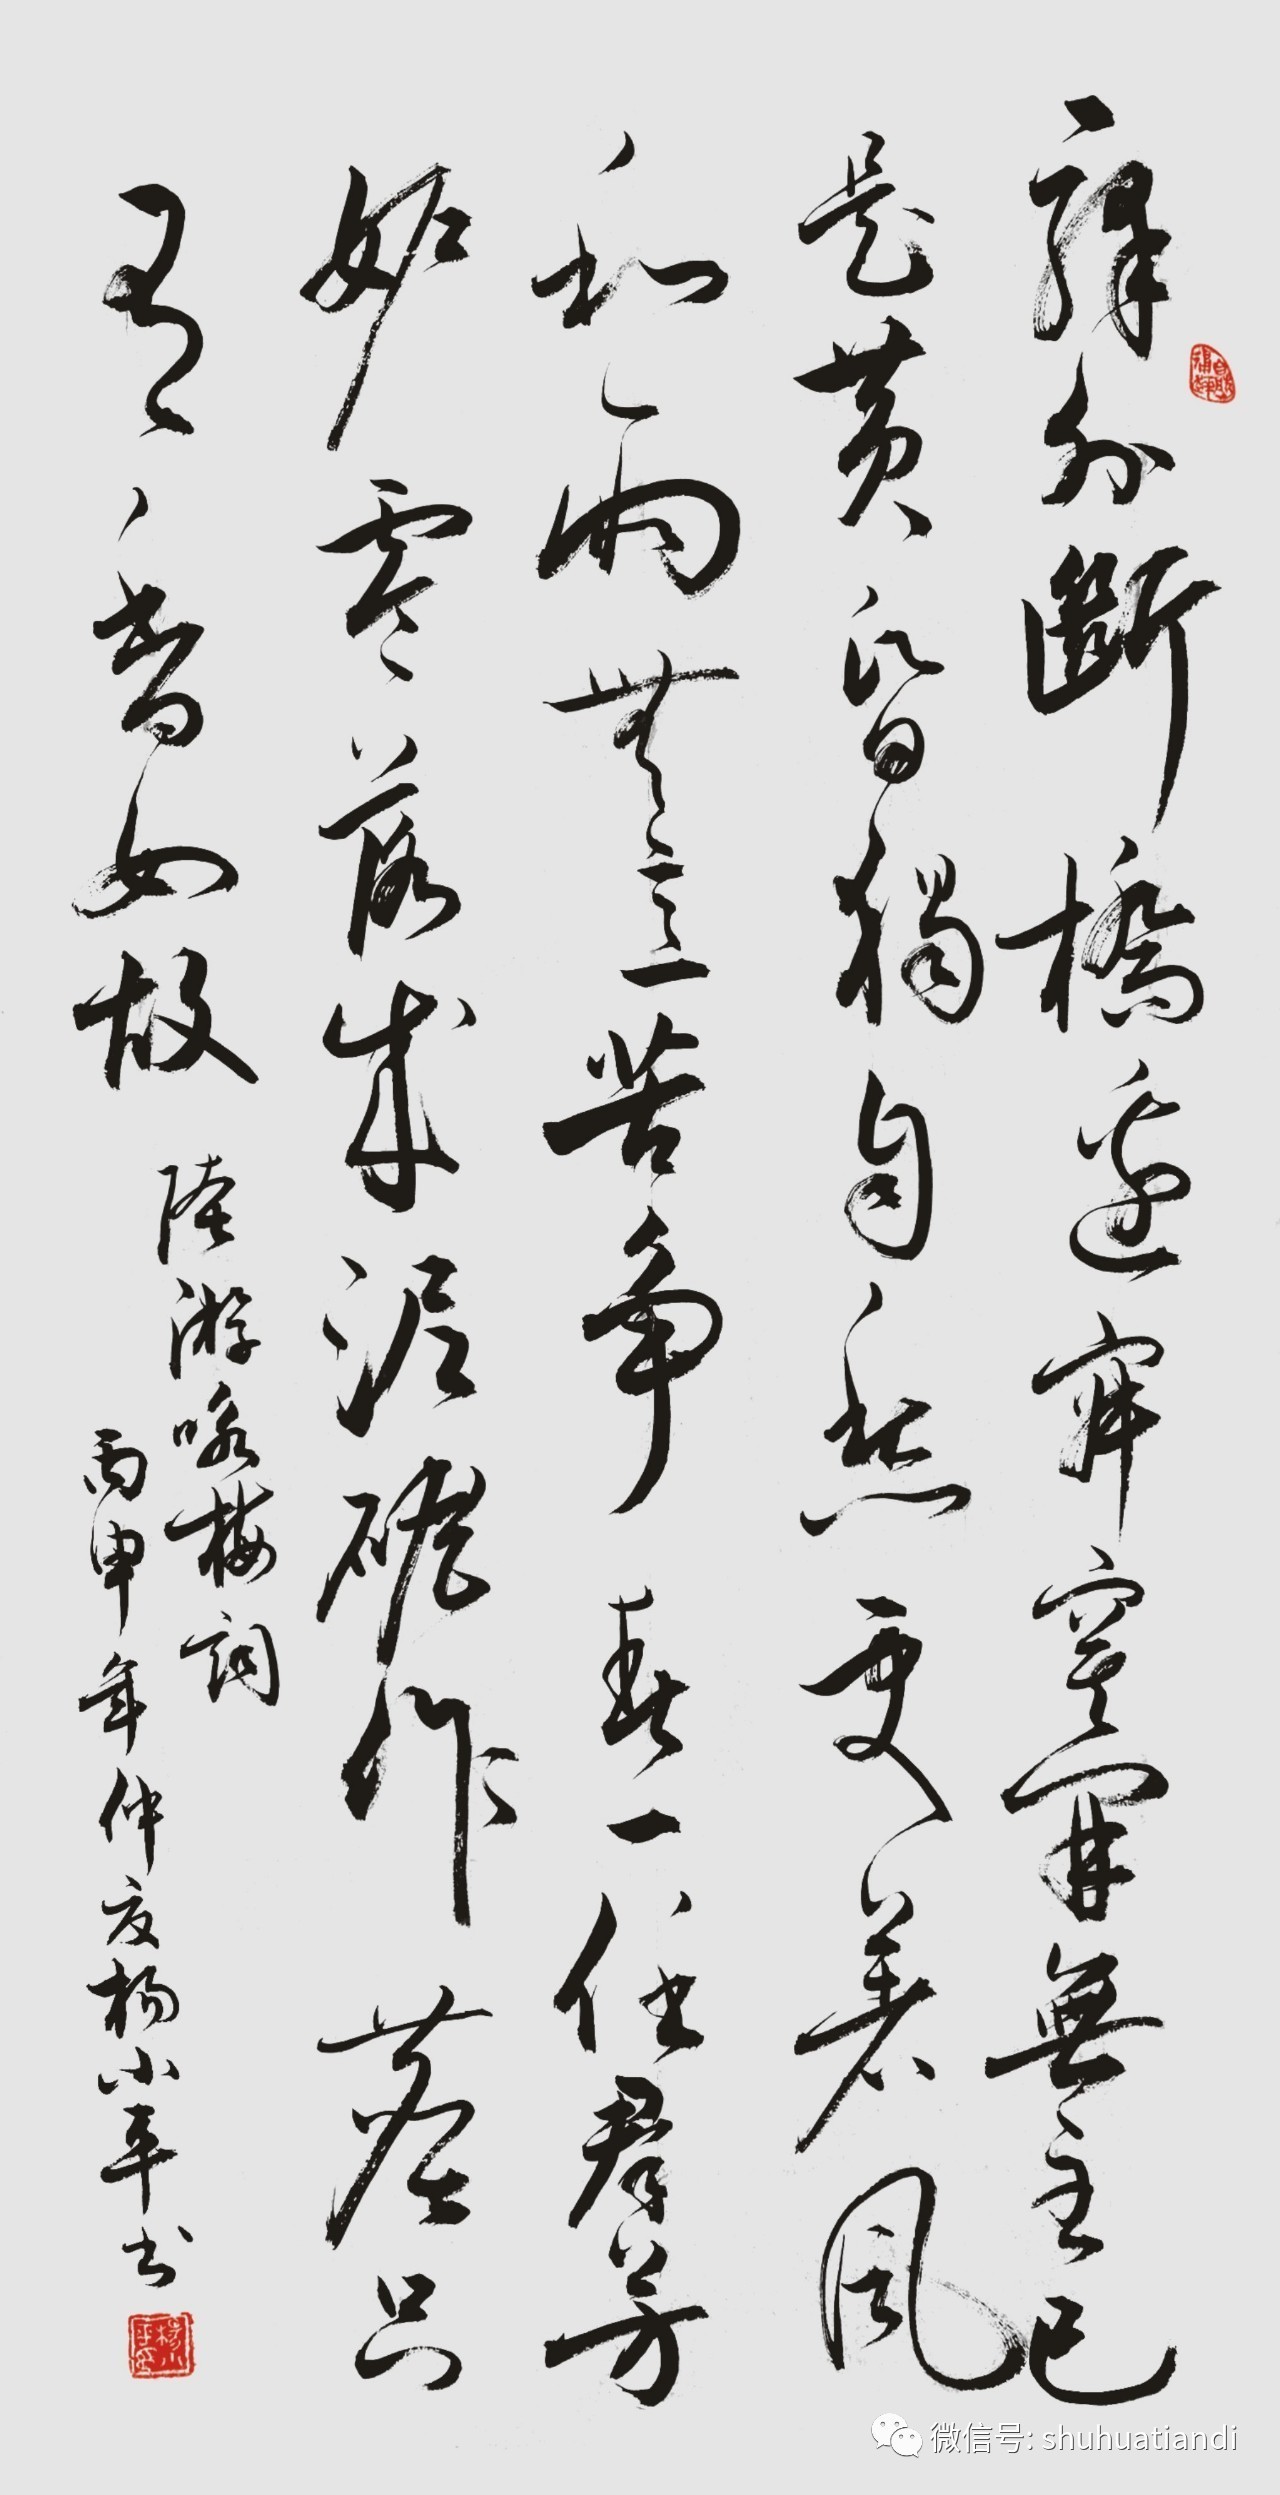 驛外斷橋邊寂寞開無主已
是黄昏獨自愁更著風
和雨無意苦争春一任群芳
妒零落成泥碾作塵只
有香如故
陸游咏梅詞
丙申年仲夏楊小平书
楊小平印
微信号: shuhuatiandi